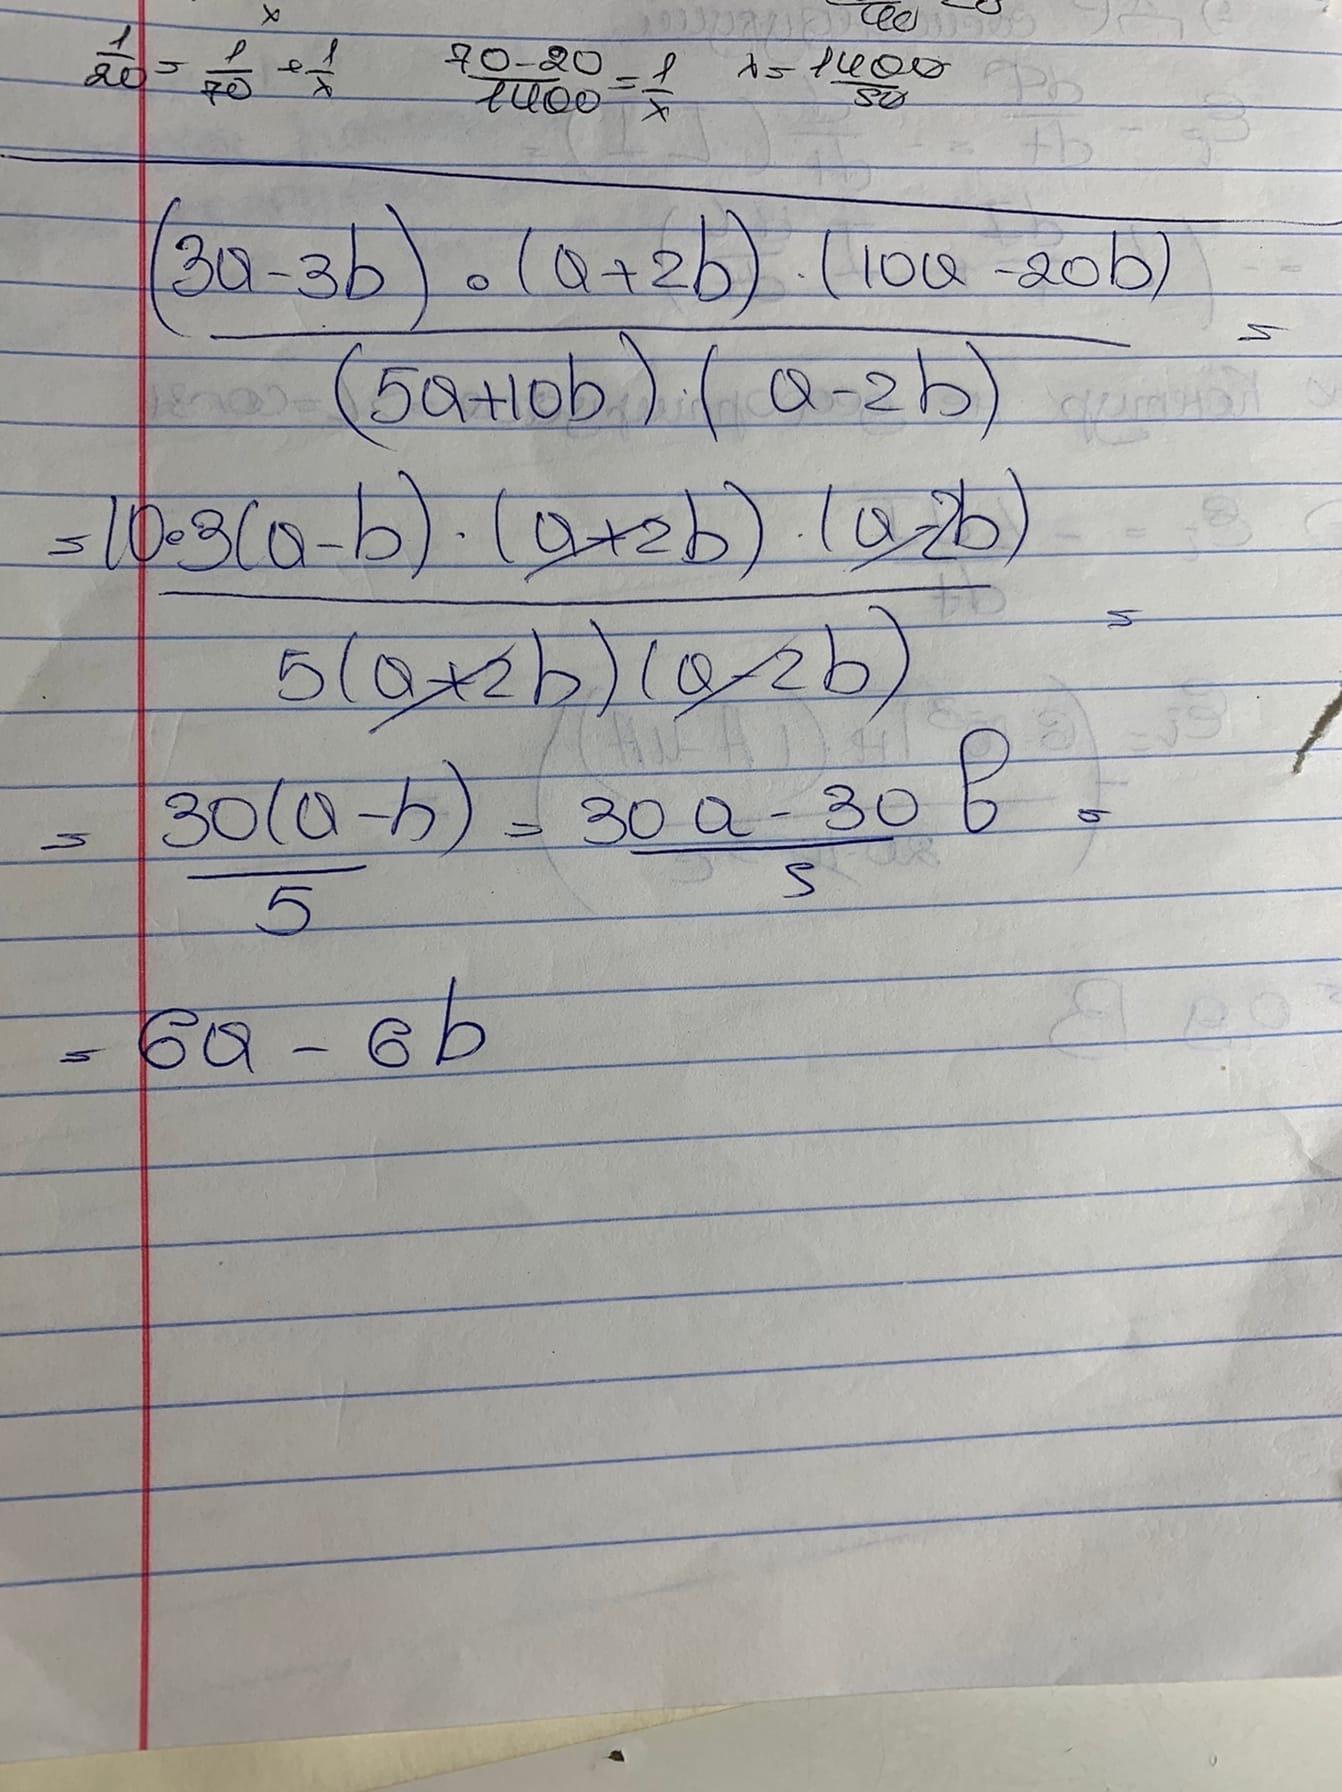 x
1/20 = 1/70 + 1/x (70-20)/1400 = 1/x x = 1400/50
((3a-3b) · (a+2b) · (10a-20b)) / ((5a+10b) · (a-2b)) =
= (10·3(a-b) · (a+2b) · (a-2b)) / (5(a+2b)(a-2b)) =
= 30(a-b)/5 = (30a-30b)/5 =
= 6a - 6b